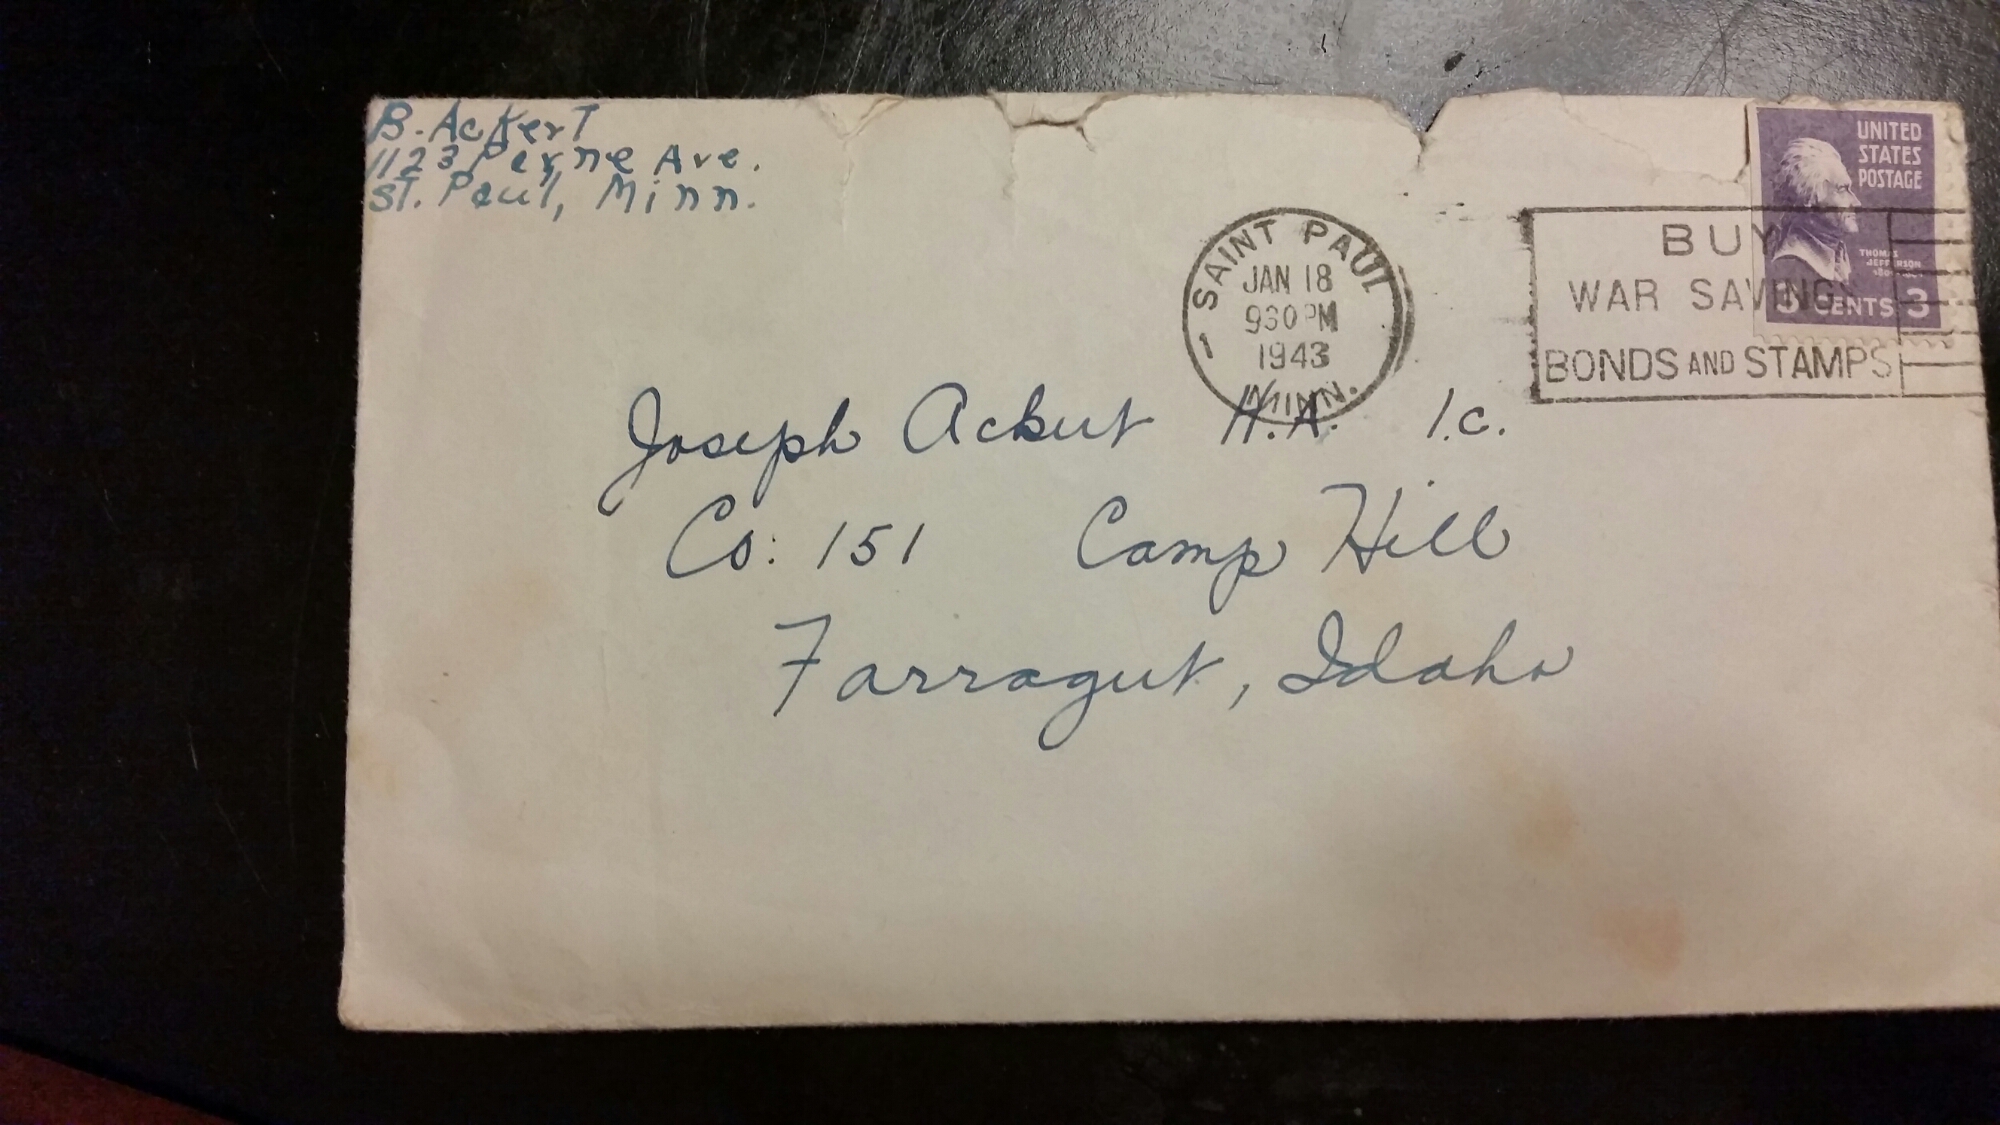 B. Ackert
1123 Payne Ave.
St. Paul, Minn.
UNITED
STATES
POSTAGE
THOMAS
JEFFERSON
3 CENTS 3
SAINT PAUL
JAN 18
930 PM
1943
MINN.
1
BUY
WAR SAVINGS
BONDS AND STAMPS
Joseph Ackert H.A. 1.c.
Co: 151 Camp Hill
Farragut, Idaho